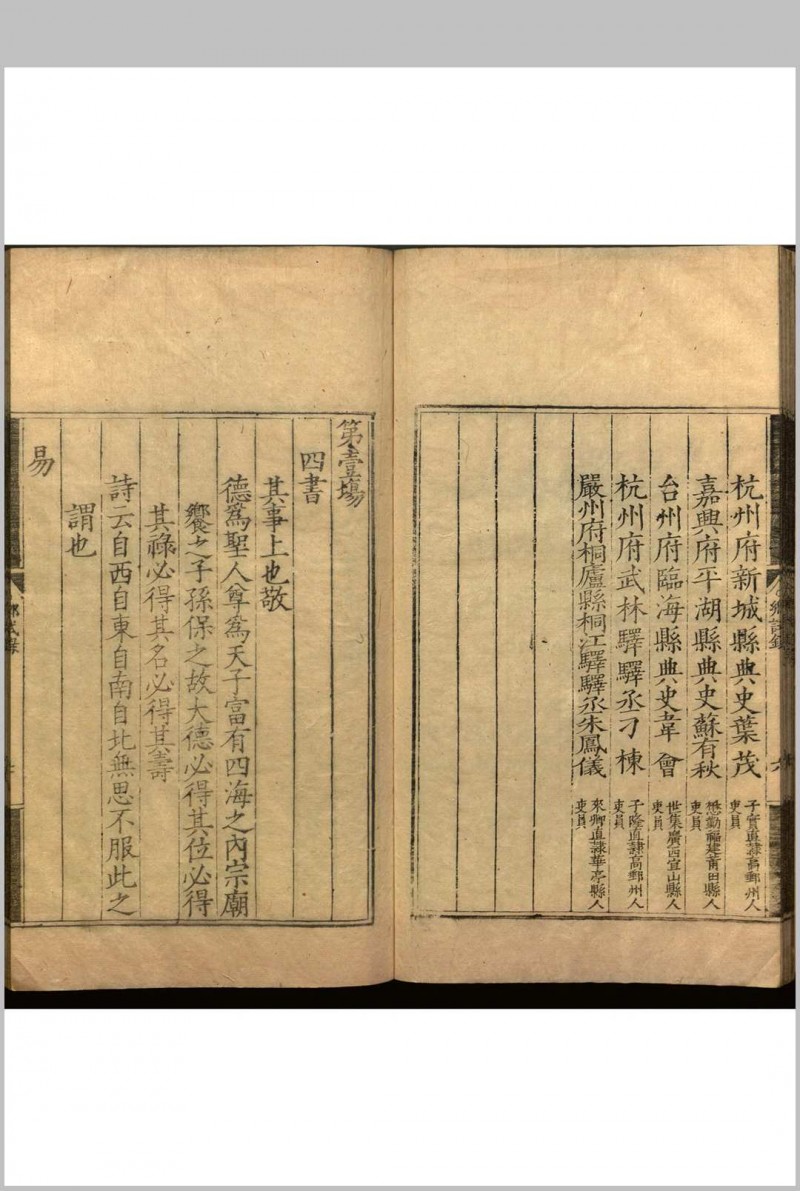 杭州府新城縣典史葉茂
子實直隸高郵州人
吏員
嘉興府平湖縣典史蘇有秋
懋勤福建莆田縣人
吏員
台州府臨海縣典史韋會
世集廣西宜山縣人
吏員
杭州府武林驛驛丞刁棟
子隆直隸高郵州人
吏員
嚴州府桐廬縣桐江驛驛丞朱鳳儀
來卿直隸華亭縣人
吏員
第壹塲
四書
其事上也敬
德爲聖人尊爲天子富有四海之內宗廟
饗之子孫保之故大德必得其位必得
其祿必得其名必得其壽
詩云自西自東自南自北無思不服此之
謂也
易